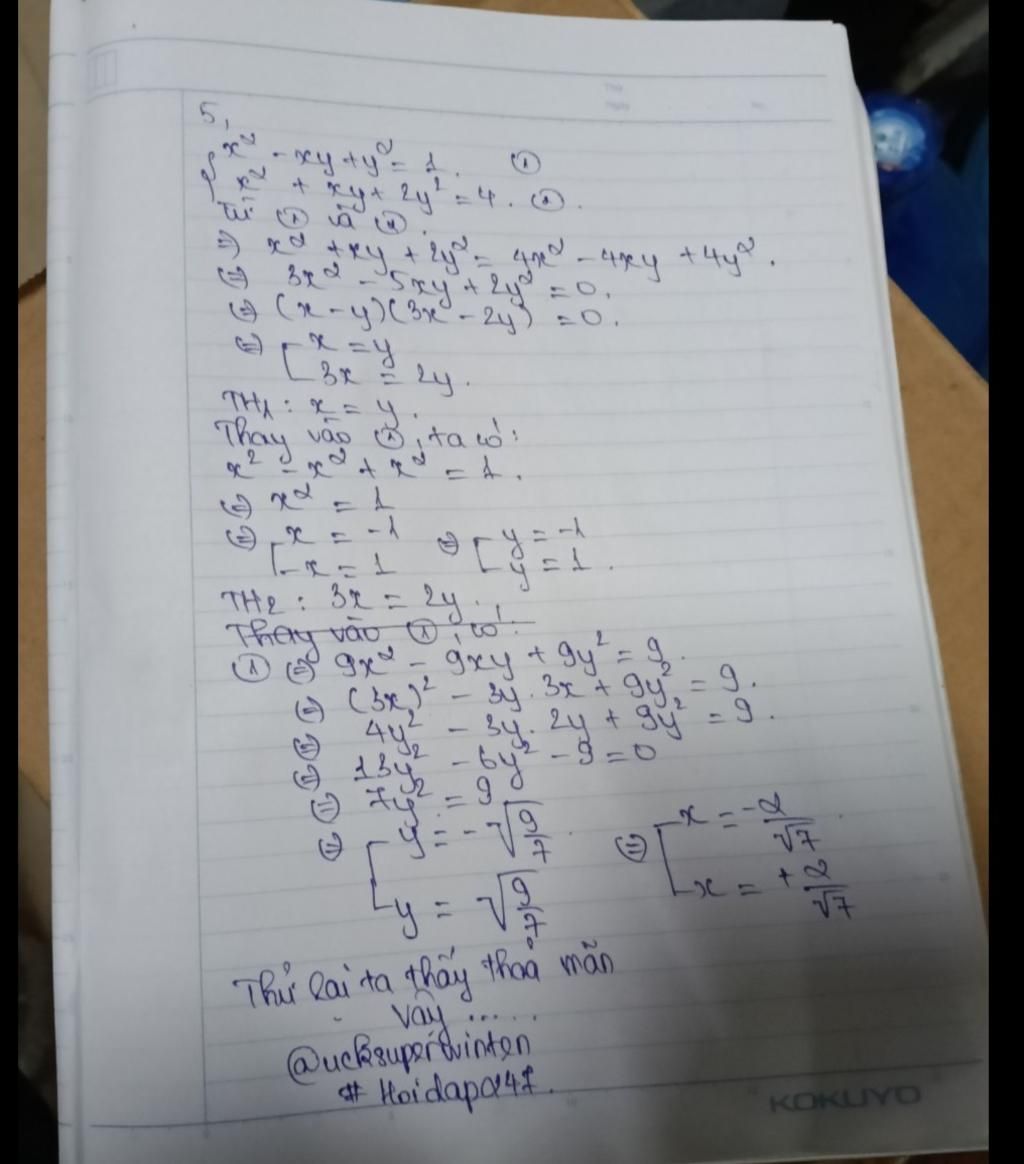 5,
x² - xy + y² = 1. ①
x² + xy + 2y² = 4. ②.
Từ ① và ②.
⇒ x² + xy + 2y² = 4x² - 4xy + 4y².
⇔ 3x² - 5xy + 2y² = 0.
⇔ (x - y)(3x - 2y) = 0.
⇔ [ x = y
3x = 2y.
TH1: x = y.
Thay vào ①, ta có:
x² - x² + x² = 1.
⇔ x² = 1
⇔ [ x = -1 ⇔ [ y = -1
x = 1 y = 1.
TH2: 3x = 2y.
Thay vào ①, có:
① ⇔ 9x² - 9xy + 9y² = 9.
⇔ (3x)² - 3y. 3x + 9y² = 9.
⇔ 4y² - 3y. 2y + 9y² = 9.
⇔ 13y² - 6y² - 9 = 0
⇔ 7y² = 9
⇔ [ y = -√(9/7) ⇔ [ x = -2/√7
y = √(9/7) x = +2/√7
Thử lại ta thấy thoả mãn
Vậy .....
@ucksuperwinten
# Hoidap247.
KOKUYO